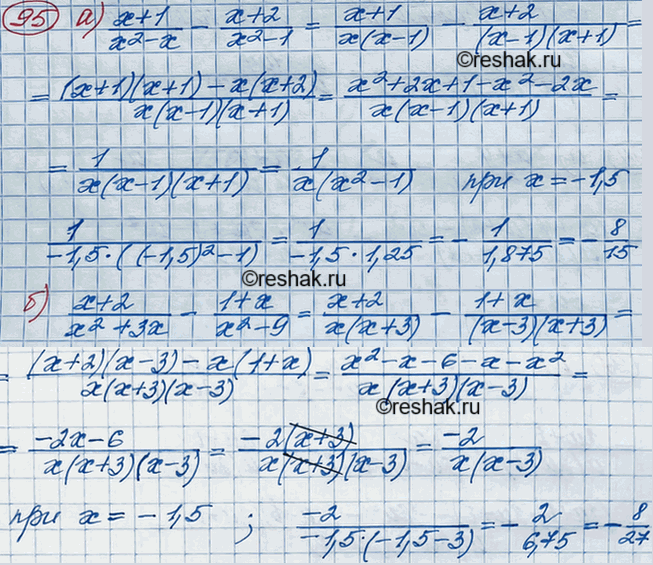 95 а) (x+1)/(x²-x) - (x+2)/(x²-1) = (x+1)/(x(x-1)) - (x+2)/((x-1)(x+1)) =
©reshak.ru
= ((x+1)(x+1)-x(x+2))/(x(x-1)(x+1)) = (x²+2x+1-x²-2x)/(x(x-1)(x+1)) =
= 1/(x(x-1)(x+1)) = 1/(x(x²-1)) при x=-1,5
1/(-1,5·((-1,5)²-1)) = 1/(-1,5·1,25) = -1/1,875 = -8/15
©reshak.ru
б) (x+2)/(x²+3x) - (1+x)/(x²-9) = (x+2)/(x(x+3)) - (1+x)/((x-3)(x+3)) =
= ((x+2)(x-3)-x(1+x))/(x(x+3)(x-3)) = (x²-x-6-x-x²)/(x(x+3)(x-3)) =
©reshak.ru
= (-2x-6)/(x(x+3)(x-3)) = (-2(x+3))/(x(x+3)(x-3)) = -2/(x(x-3))
при x=-1,5 ; -2/(-1,5·(-1,5-3)) = -2/6,75 = -8/27